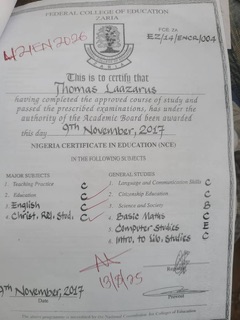 FEDERAL COLLEGE OF EDUCATION
ZARIA
EZ/14/ENCR/004
This is to certify that
Thomas Laazarus
having completed the approved course of study and
passed the prescribed examinations, has under
the authority of the Academic Board been awarded
this day 9TH November, 2017
NIGERIA CERTIFICATE IN EDUCATION (NCE)
IN THE FOLLOWING SUBJECTS
MAJOR SUBJECTS
1. Teaching Practice C
2. Education C
3. English C
4. Christ. Rel. Stud, C
GENERAL STUDIES
1. Language and Communication Skills C
2. Citizenship Education C
3. Science and Society B
4. Basic Maths C
5. Computer Studies E
6. Intro. to Lib. Studies C
Registrar
9TH November, 2017
Date
Provost